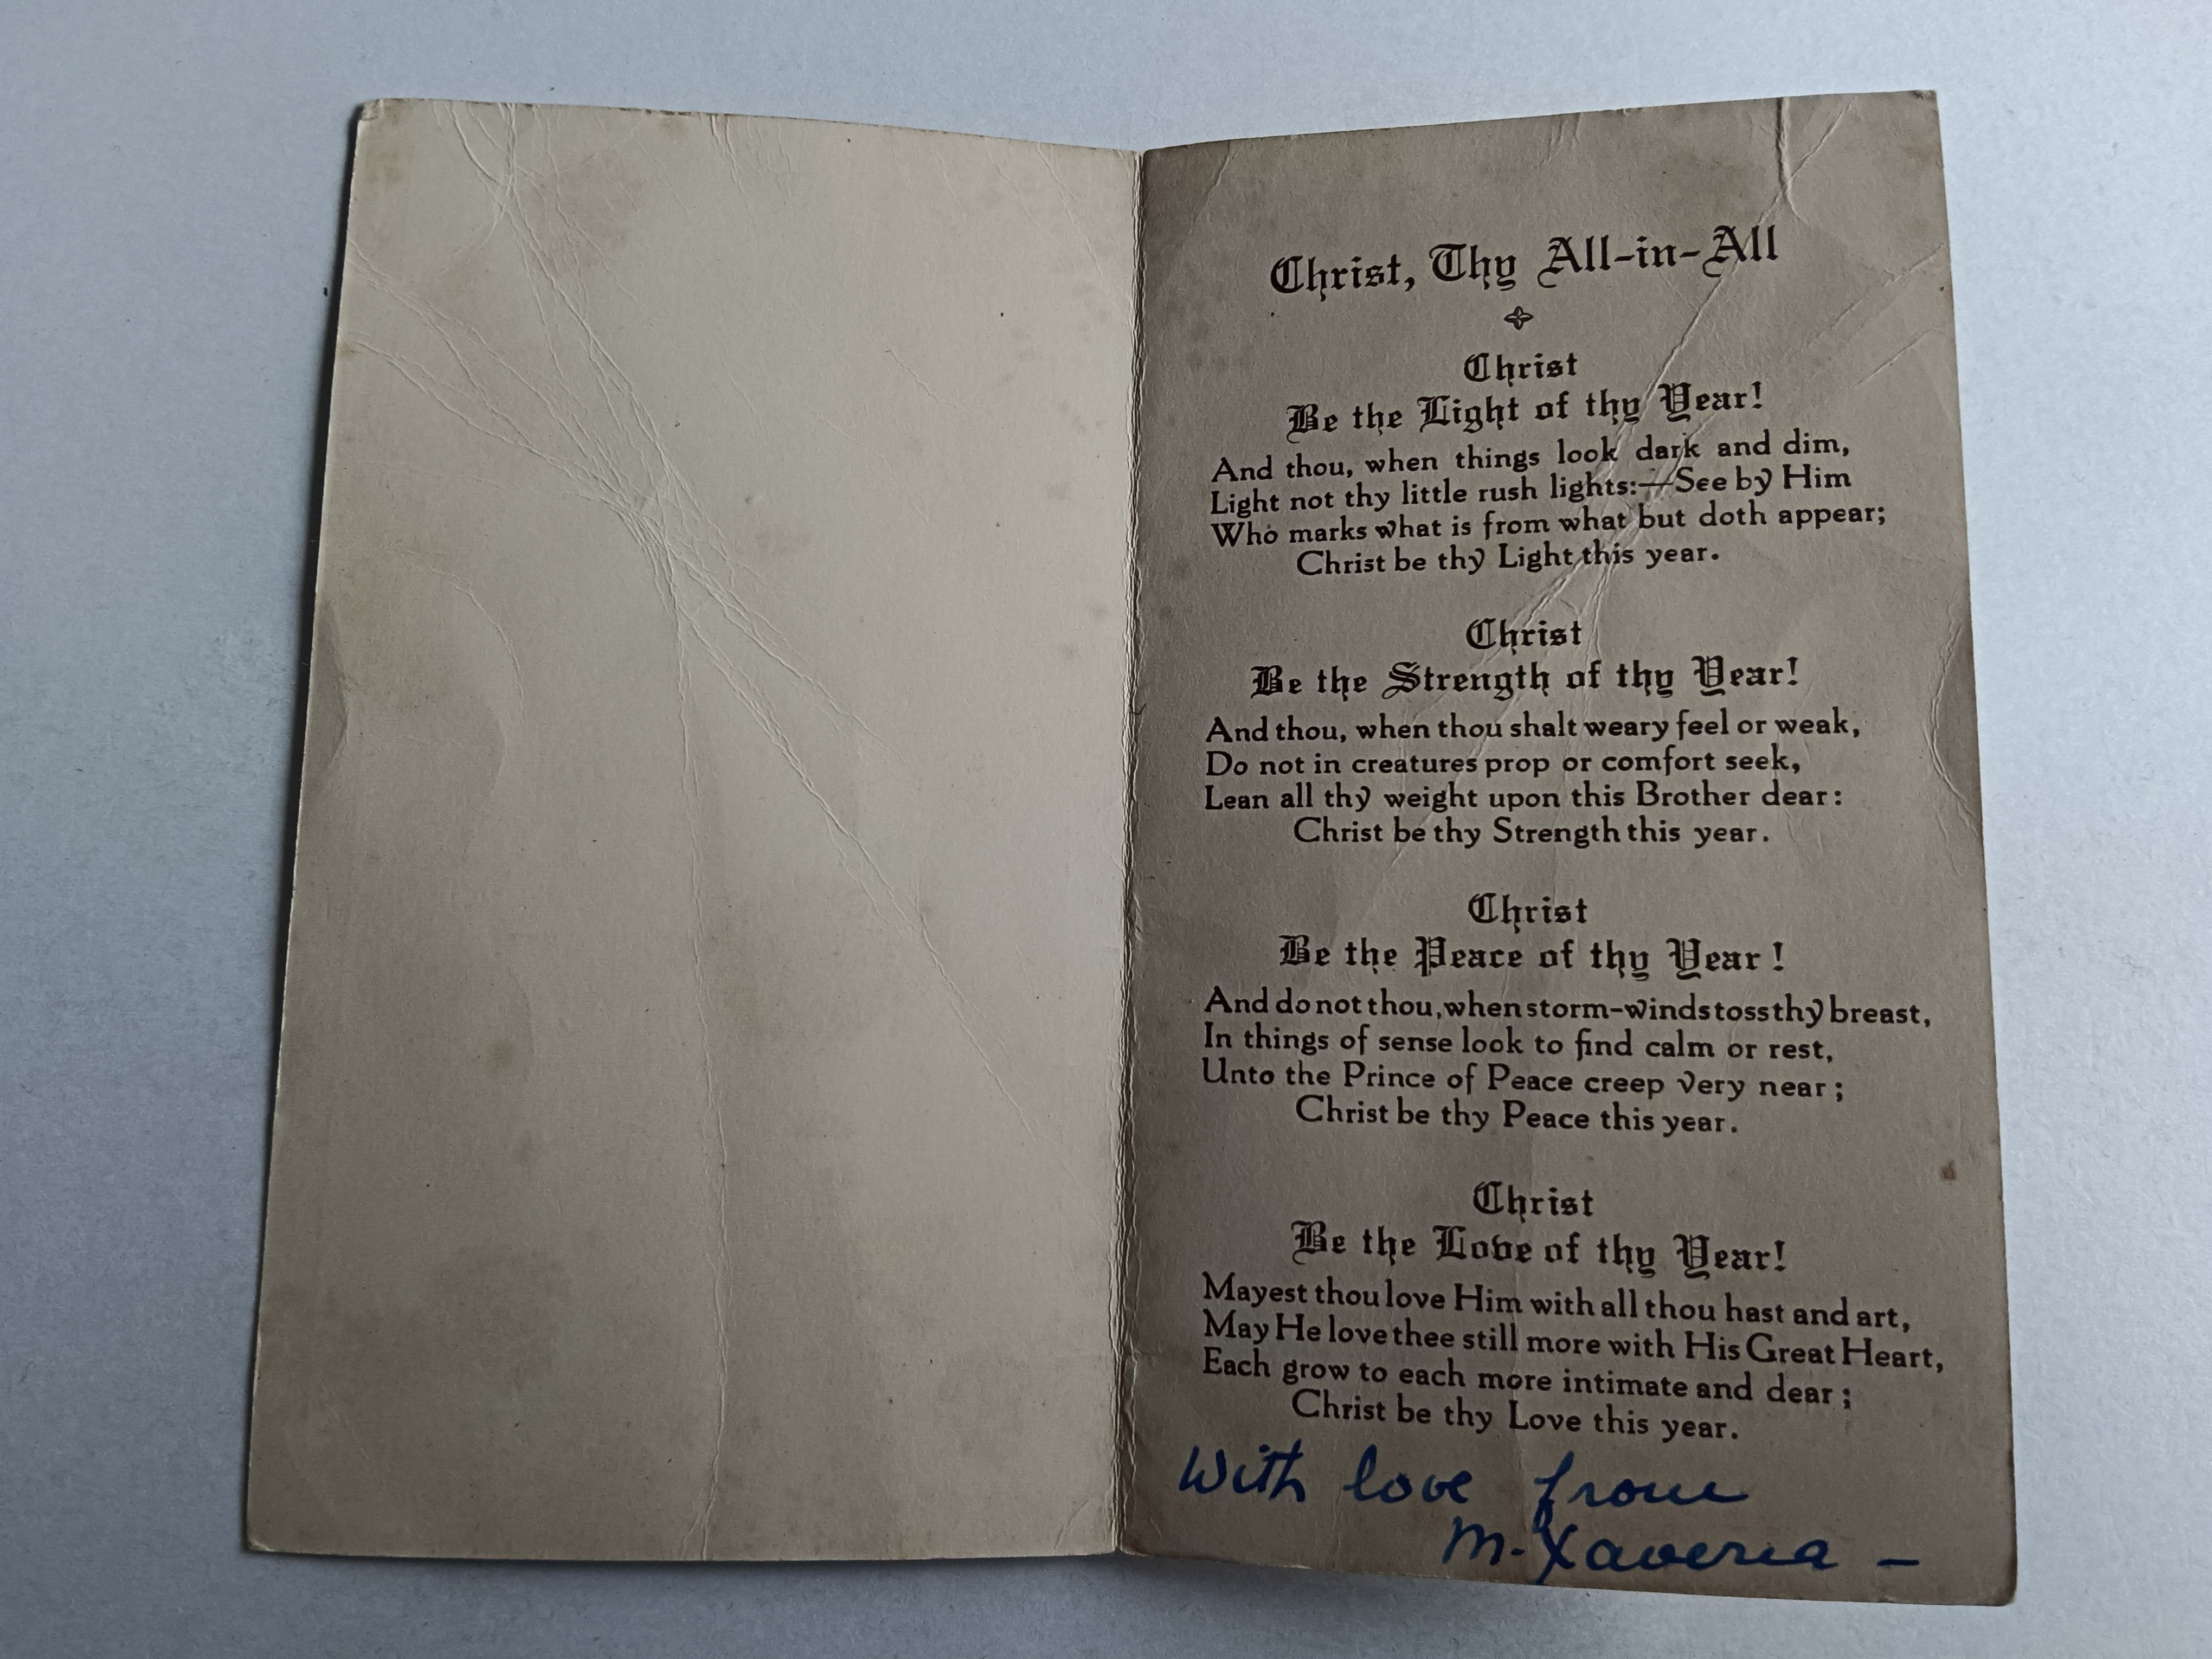 Christ, Thy All-in-All
Christ
Be the Light of thy Year!
And thou, when things look dark and dim,
Light not thy little rush lights:—See by Him
Who marks what is from what but doth appear;
Christ be thy Light this year.
Christ
Be the Strength of thy Year!
And thou, when thou shalt weary feel or weak,
Do not in creatures prop or comfort seek,
Lean all thy weight upon this Brother dear:
Christ be thy Strength this year.
Christ
Be the Peace of thy Year!
And do not thou, when storm-winds toss thy breast,
In things of sense look to find calm or rest,
Unto the Prince of Peace creep very near;
Christ be thy Peace this year.
Christ
Be the Love of thy Year!
Mayest thou love Him with all thou hast and art,
May He love thee still more with His Great Heart,
Each grow to each more intimate and dear;
Christ be thy Love this year.
With love from
M. Xaveria —